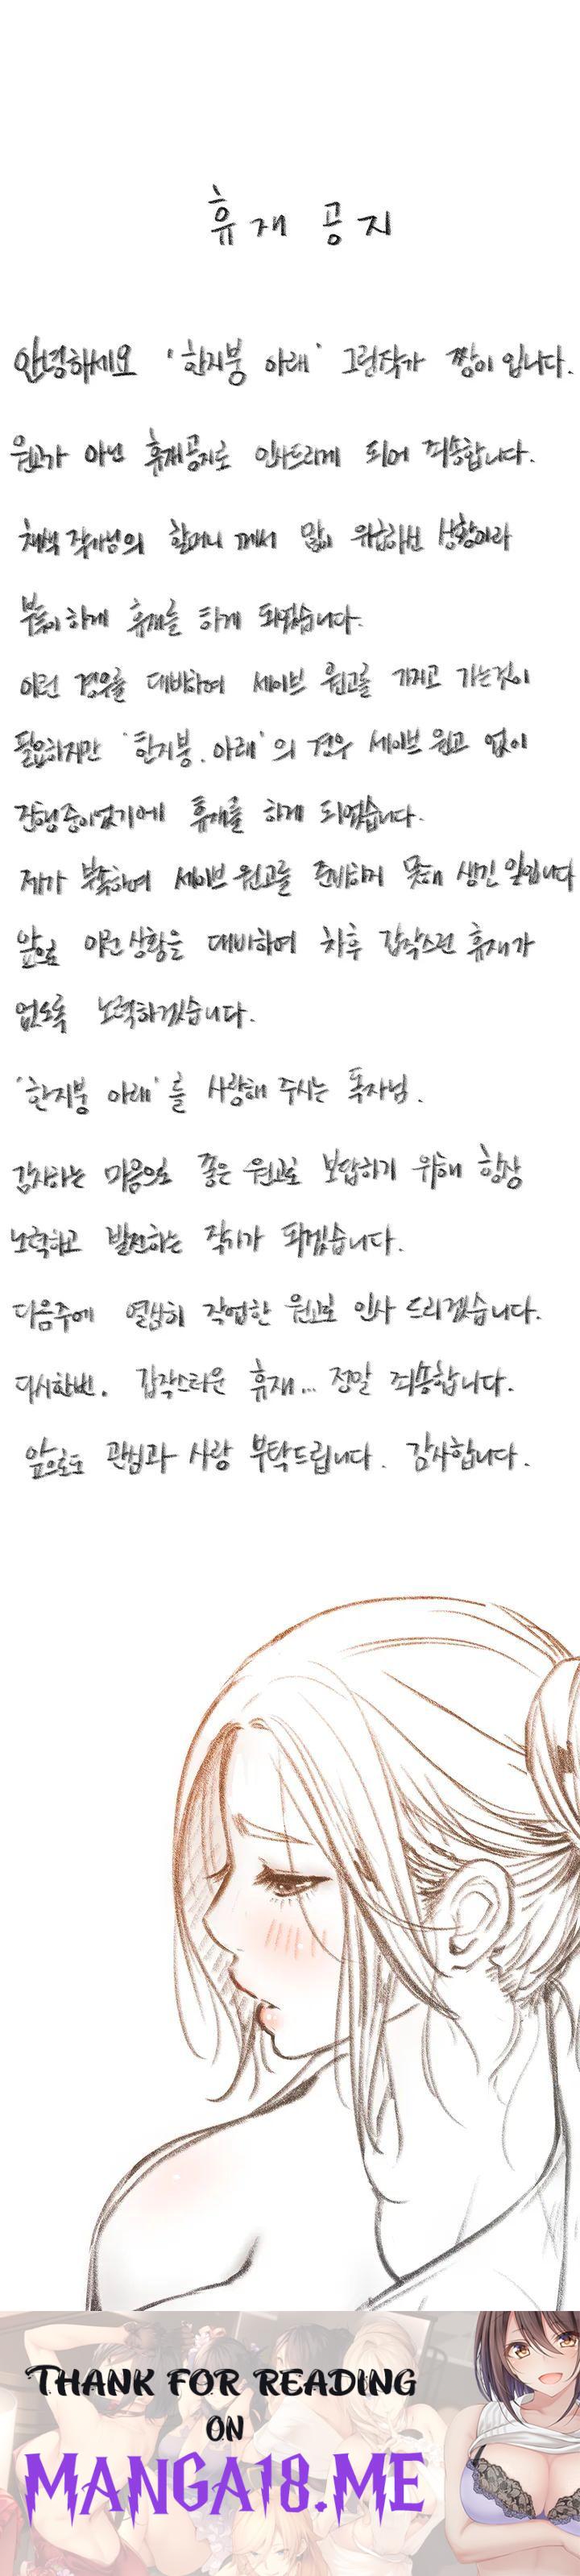 휴재 공지
안녕하세요 '한지붕 아래' 그림작가 짱이 입니다.
원고가 아닌 휴재공지로 인사드리게 되어 죄송합니다.
채색 작가님의 할머니 께서 많이 위급하신 상황이라
부득이 하게 휴재를 하게 되었습니다.
이런 경우를 대비하여 세이브 원고를 가지고 가는것이
필요하지만 '한지붕. 아래'의 경우 세이브 원고 없이
진행중이었기에 휴재를 하게 되었습니다.
제가 부족하여 세이브 원고를 준비하지 못해 생긴 일입니다
앞으로 이런 상황을 대비하여 차후 갑작스런 휴재가
없도록 노력하겠습니다.
'한지붕 아래'를 사랑해 주시는 독자님.
감사하는 마음으로 좋은 원고로 보답하기 위해 항상
노력하고 발전하는 작가가 되겠습니다.
다음주에 열심히 작업한 원고로 인사 드리겠습니다.
다시한번. 갑작스러운 휴재... 정말 죄송합니다.
앞으로도 관심과 사랑 부탁드립니다. 감사합니다.
THANK FOR READING
ON
MANGA18.ME